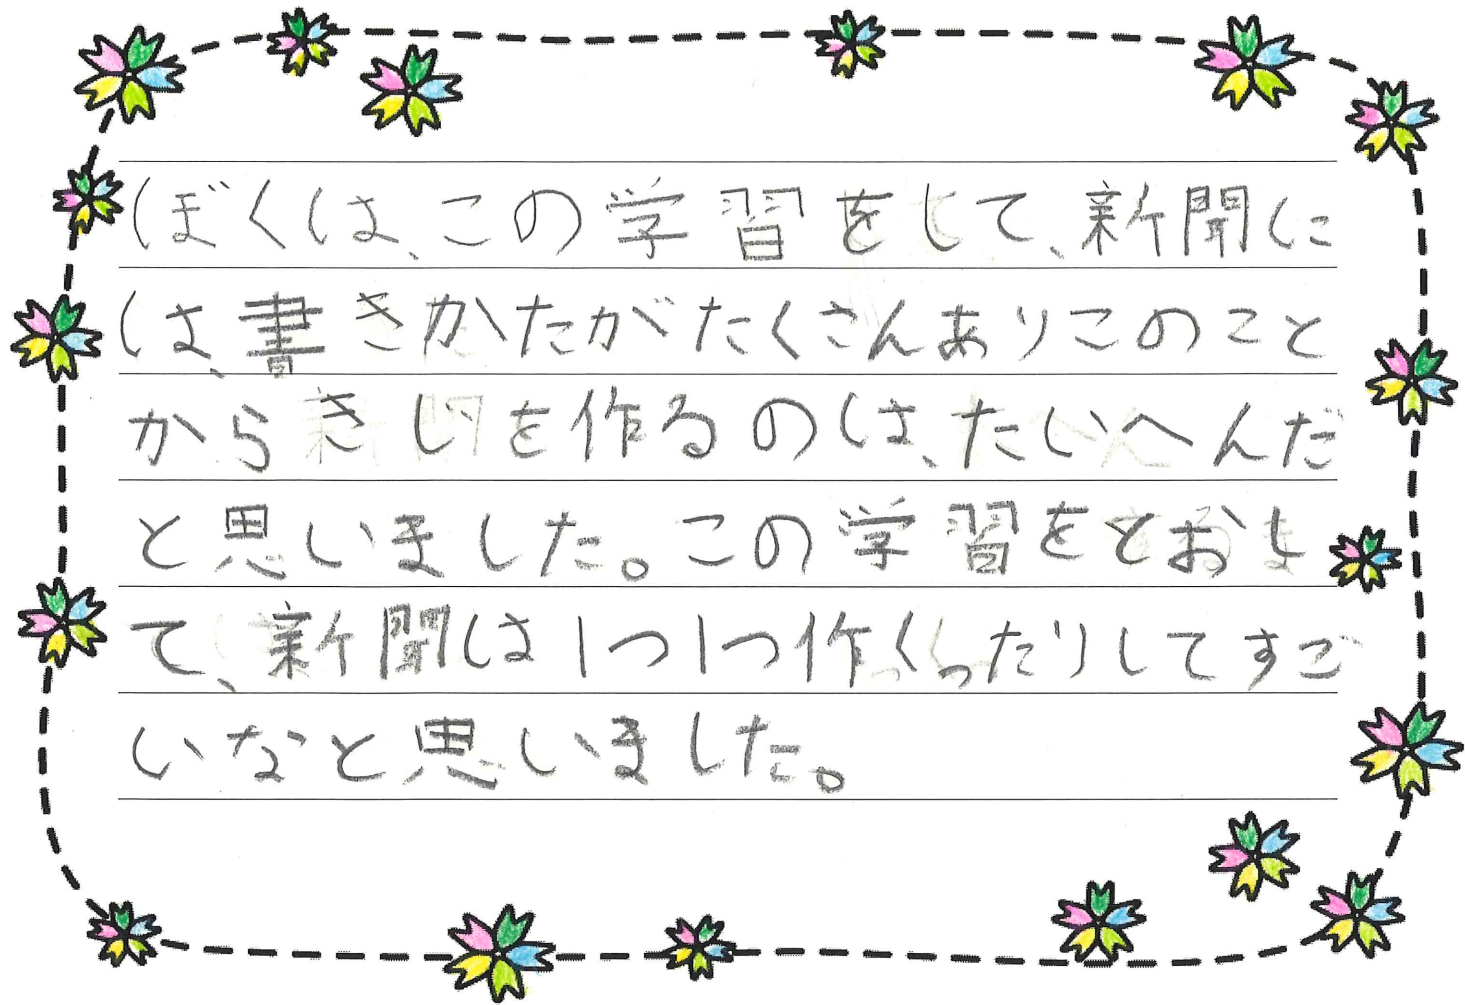 ぼくは、この学習をして、新聞に
は、書きかたがたくさんありこのこと
からきじを作るのは、たいへんだ
と思いました。この学習をとおし
て、新聞は1つ1つ作くったりしてすご
いなと思いました。